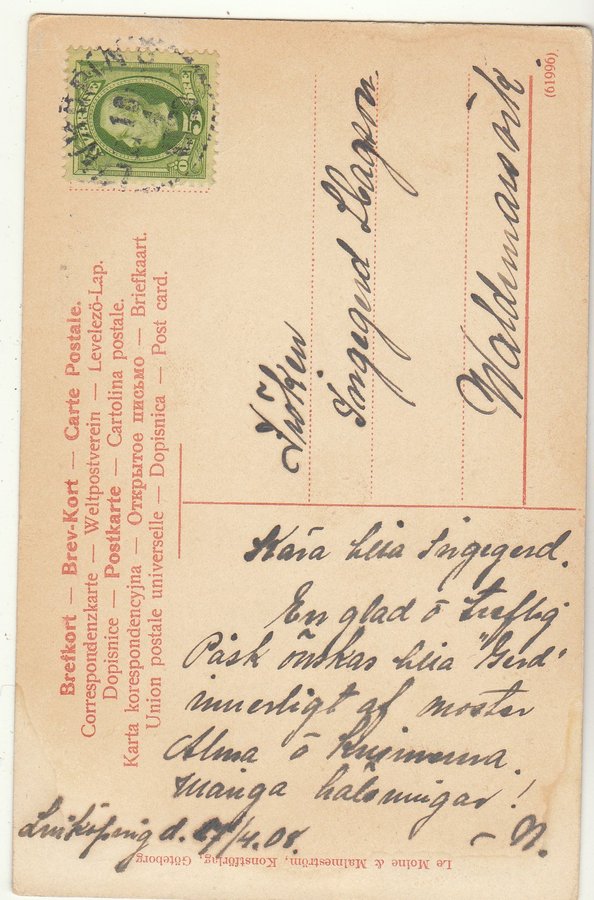 SVERIGE
5 ÖRE
Brefkort — Brev-Kort — Carte Postale.
Correspondenzkarte — Weltpostverein — Levelező-Lap.
Dopisnice — Postkarte — Cartolina postale.
Karta korespondencyjna — Открытое письмо — Briefkaart.
Union postale universelle — Dopisnica — Post card.
(61996)
Fröken
Ingegerd Hagson
Waldemarsvik.
Kära lilla Ingegerd.
En glad o treflig
Påsk önskas lilla "Gerd"
innerligt af moster
Alma o
Många hälsningar!
Linköping d. /4.08.
Le Moine & Malmeström, Konstförlag, Göteborg